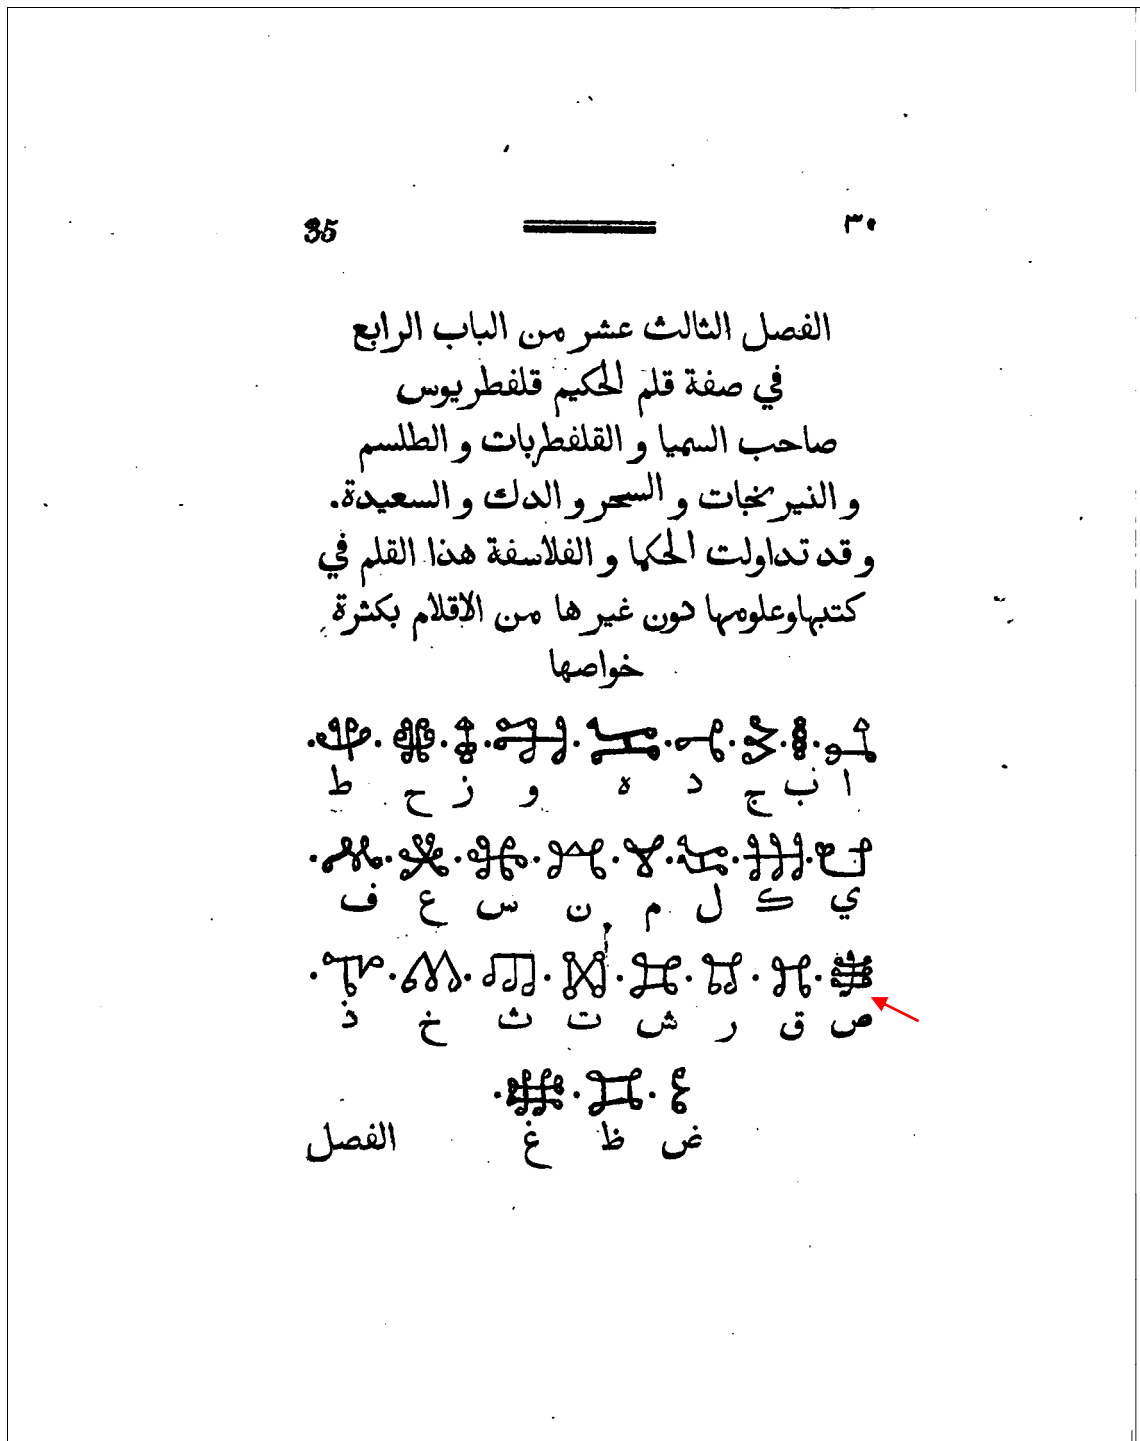 35 ٣٥
الفصل الثالث عشر من الباب الرابع
في صفة قلم الحكيم قلفطريوس
صاحب السميا و القلفطربات و الطلسم
و النيرنجات و السحر و الدك و السعيدة.
و قد تداولت الحكما و الفلاسفة هذا القلم في
كتبهاوعلومها دون غيرها من الاقلام بكثرة
خواصها
ا ب ج د ه و ز ح ط
ي ك ل م ن س ع ف
ص ق ر ش ت ث خ ذ
ض ظ غ الفصل